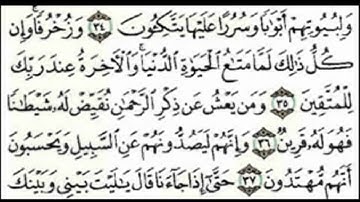 وَلِبُيُوتِهِمْ أَبْوَٰبًا وَسُرُرًا عَلَيْهَا يَتَّكِـُٔونَ ٣٤ وَزُخْرُفًا ۚ وَإِن
كُلُّ ذَٰلِكَ لَمَّا مَتَٰعُ ٱلْحَيَوٰةِ ٱلدُّنْيَا ۚ وَٱلْـَٔاخِرَةُ عِندَ رَبِّكَ
لِلْمُتَّقِينَ ٣٥ وَمَن يَعْشُ عَن ذِكْرِ ٱلرَّحْمَٰنِ نُقَيِّضْ لَهُۥ شَيْطَٰنًا
فَهُوَ لَهُۥ قَرِينٌ ٣٦ وَإِنَّهُمْ لَيَصُدُّونَهُمْ عَنِ ٱلسَّبِيلِ وَيَحْسَبُونَ
أَنَّهُم مُّهْتَدُونَ ٣٧ حَتَّىٰٓ إِذَا جَآءَنَا قَالَ يَٰلَيْتَ بَيْنِى وَبَيْنَكَ